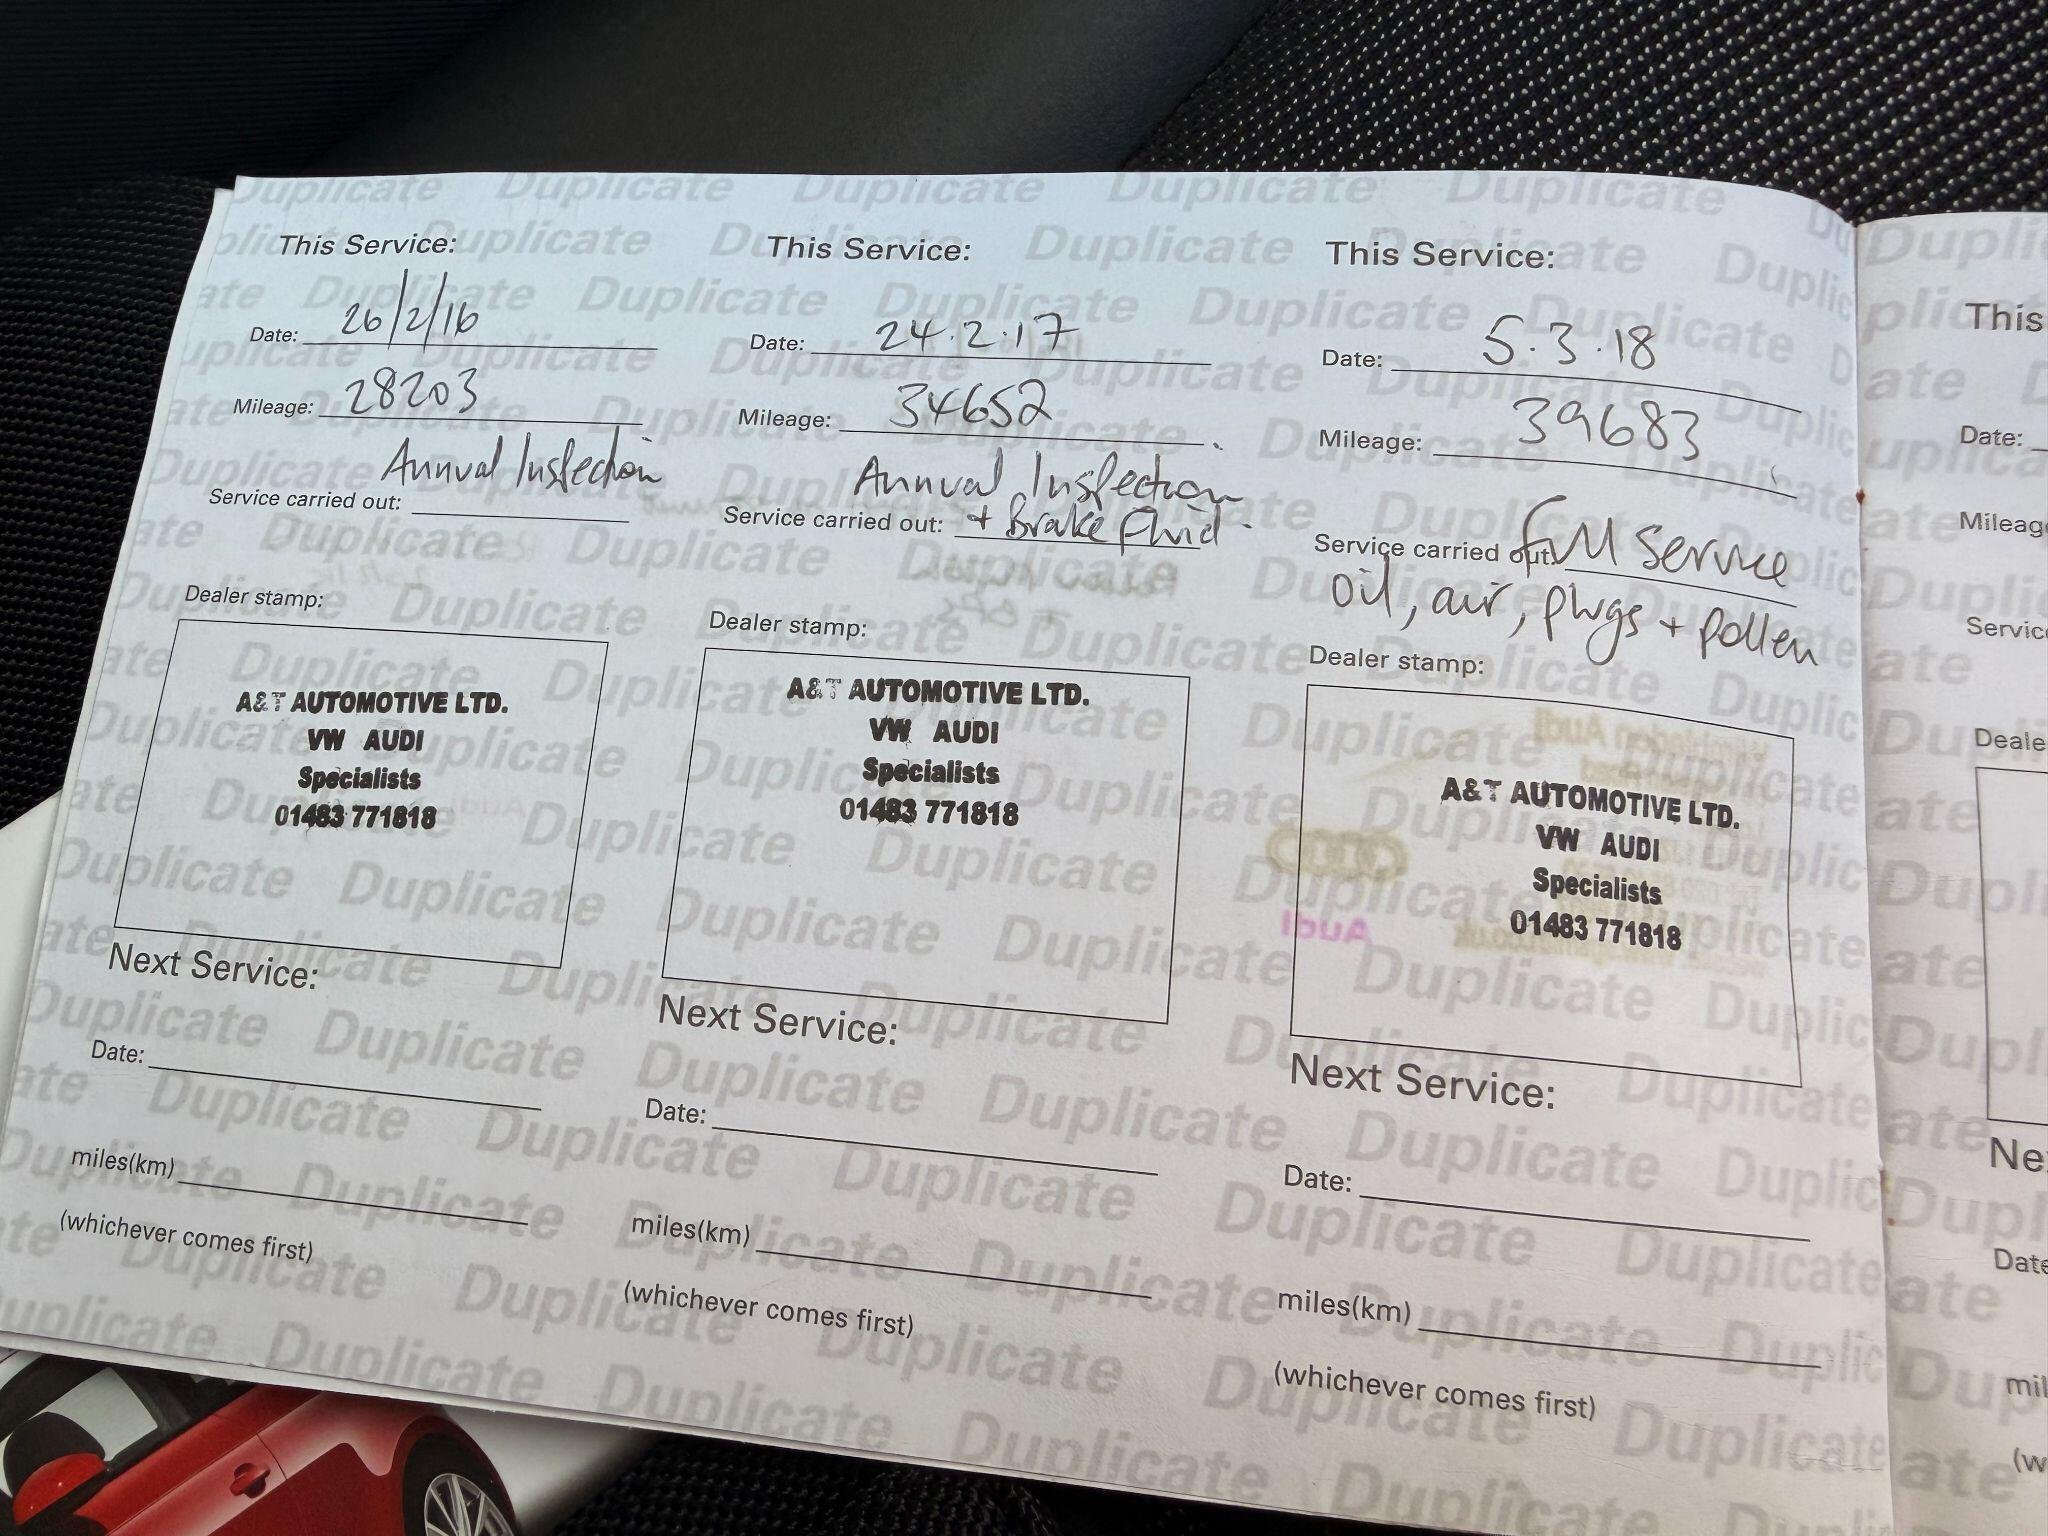 This Service:
Date: 26/2/16
Mileage: 28203
Annual Inspection
Service carried out:
Dealer stamp:
A&T AUTOMOTIVE LTD.
VW AUDI
Specialists
01483 771818
Next Service:
Date:
miles(km)
(whichever comes first)
This Service:
Date: 24.2.17
Mileage: 34652
Annual Inspection
Service carried out: + Brake fluid
Dealer stamp:
A&T AUTOMOTIVE LTD.
VW AUDI
Specialists
01483 771818
Next Service:
Date:
miles(km)
(whichever comes first)
This Service:
Date: 5.3.18
Mileage: 39683
Service carried out: Full Service
oil, air, plugs + pollen
Dealer stamp:
A&T AUTOMOTIVE LTD.
VW AUDI
Specialists
01483 771818
Audi
Next Service:
Date:
miles(km)
(whichever comes first)
This
Date:
Duplicate Duplicate Duplicate Duplicate Duplicate